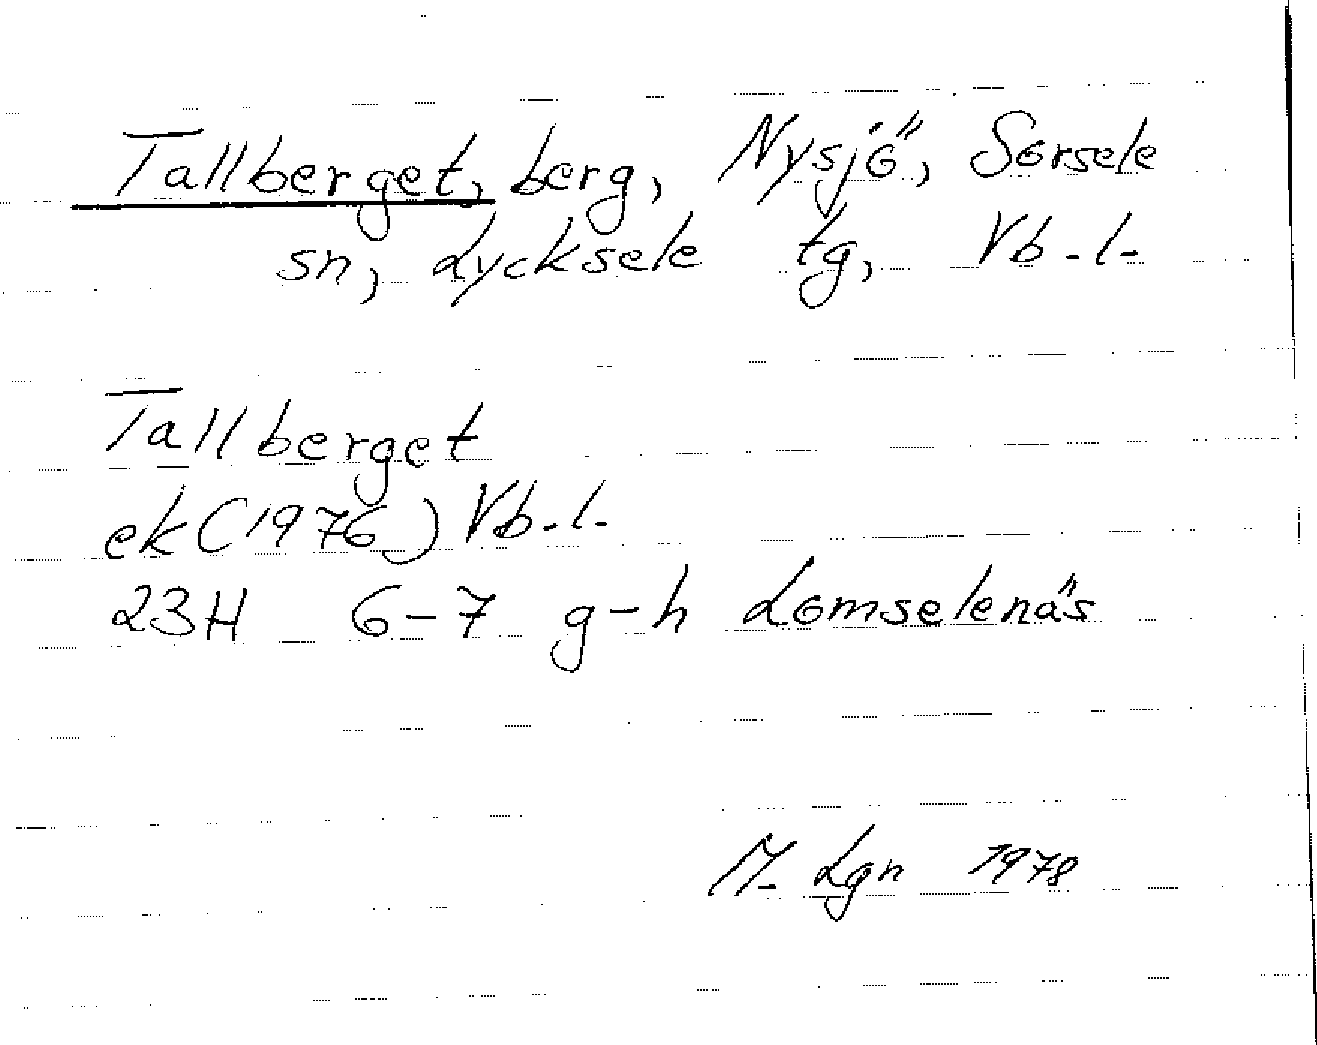 Tallberget, berg, Nysjö, Sorsele
sn, Lycksele tg, Vb.l.
Tallberget
ek(1976) Vb.l.
23H 6-7 g-h Lomselenäs
M. Lgn 1978